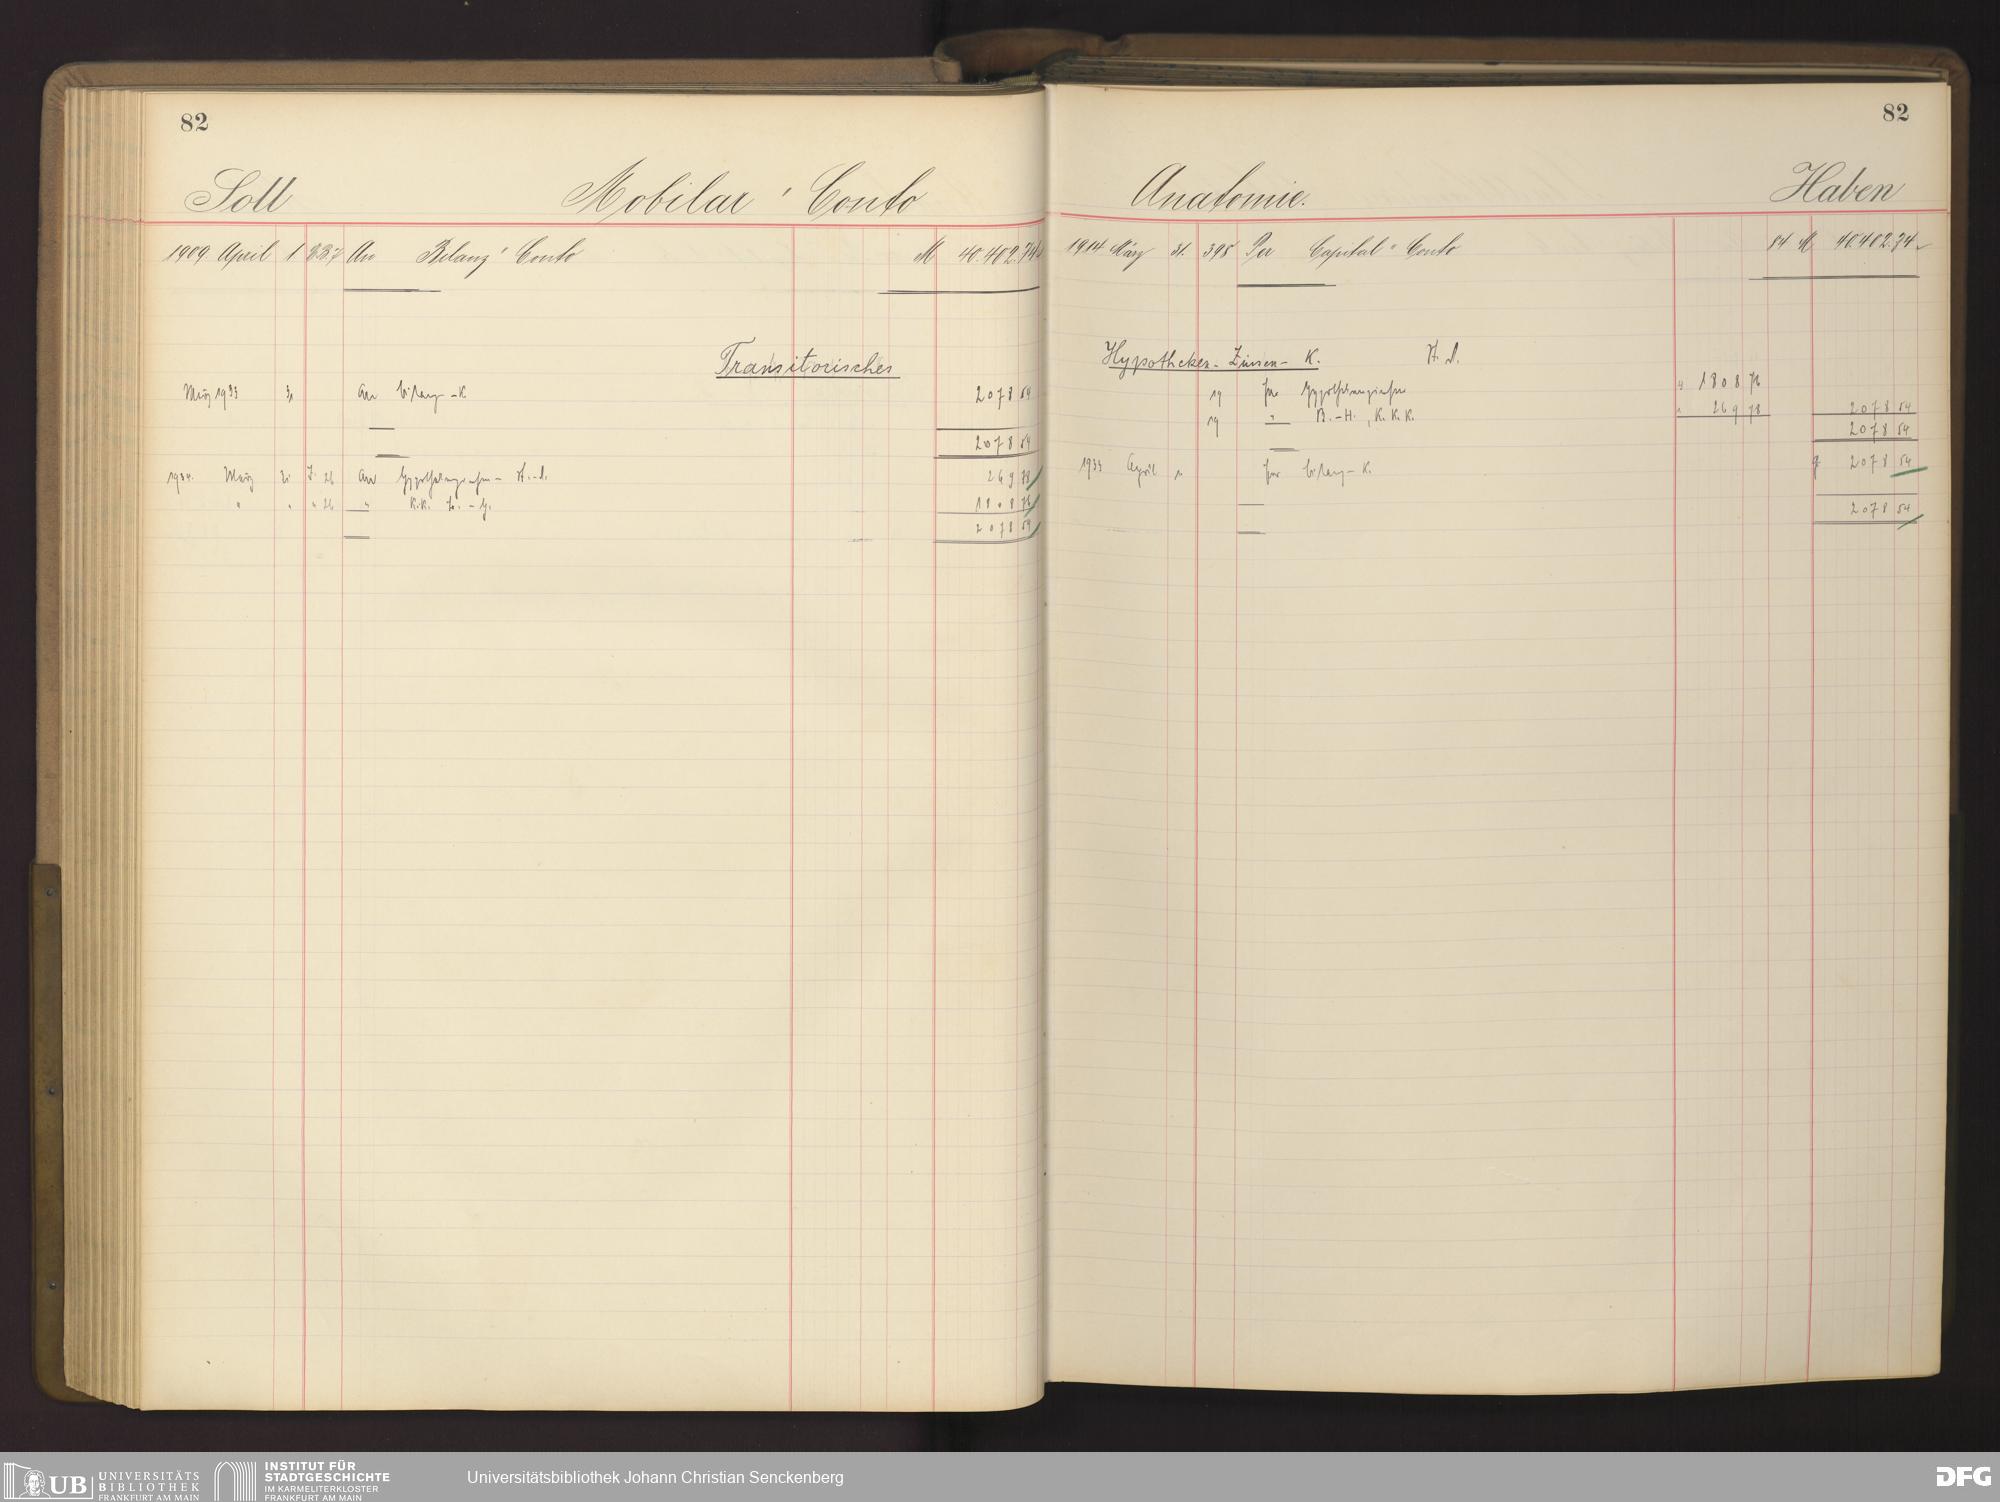 82
Soll Mobilar-Conto
1909 April 1 337 An Bilanz-Conto M 40.402.74
Transitorisches
März 1933 31 An Bilanz-K 2078 54
2078 54
1934. März 31 J. 26 An Hypothekenzinsen- A.-d. 269 78
" " " 26 " K.K. 1808 76
2078 54
82
Anatomie. Haben
1914 März 31. 398 Per Capital-Conto 84 M 40402.74
Hypotheken-Zinsen-K. A. d.
19 per Hypothekenzinsen 1808 76
19 " B.-H., K.K.K. 269 78 2078 54
2078 54
1933 April 1. per Bilanz-K. 2078 54
2078 54
UB UNIVERSITÄTS
BIBLIOTHEK
FRANKFURT AM MAIN
INSTITUT FÜR
STADTGESCHICHTE
IM KARMELITERKLOSTER
FRANKFURT AM MAIN
Universitätsbibliothek Johann Christian Senckenberg
DFG